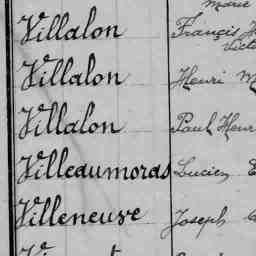 Marie
Villalon François
Victo
Villalon Henri M
Villalon Paul Henr
Villeaumoras Lucien E
Villeneuve Joseph